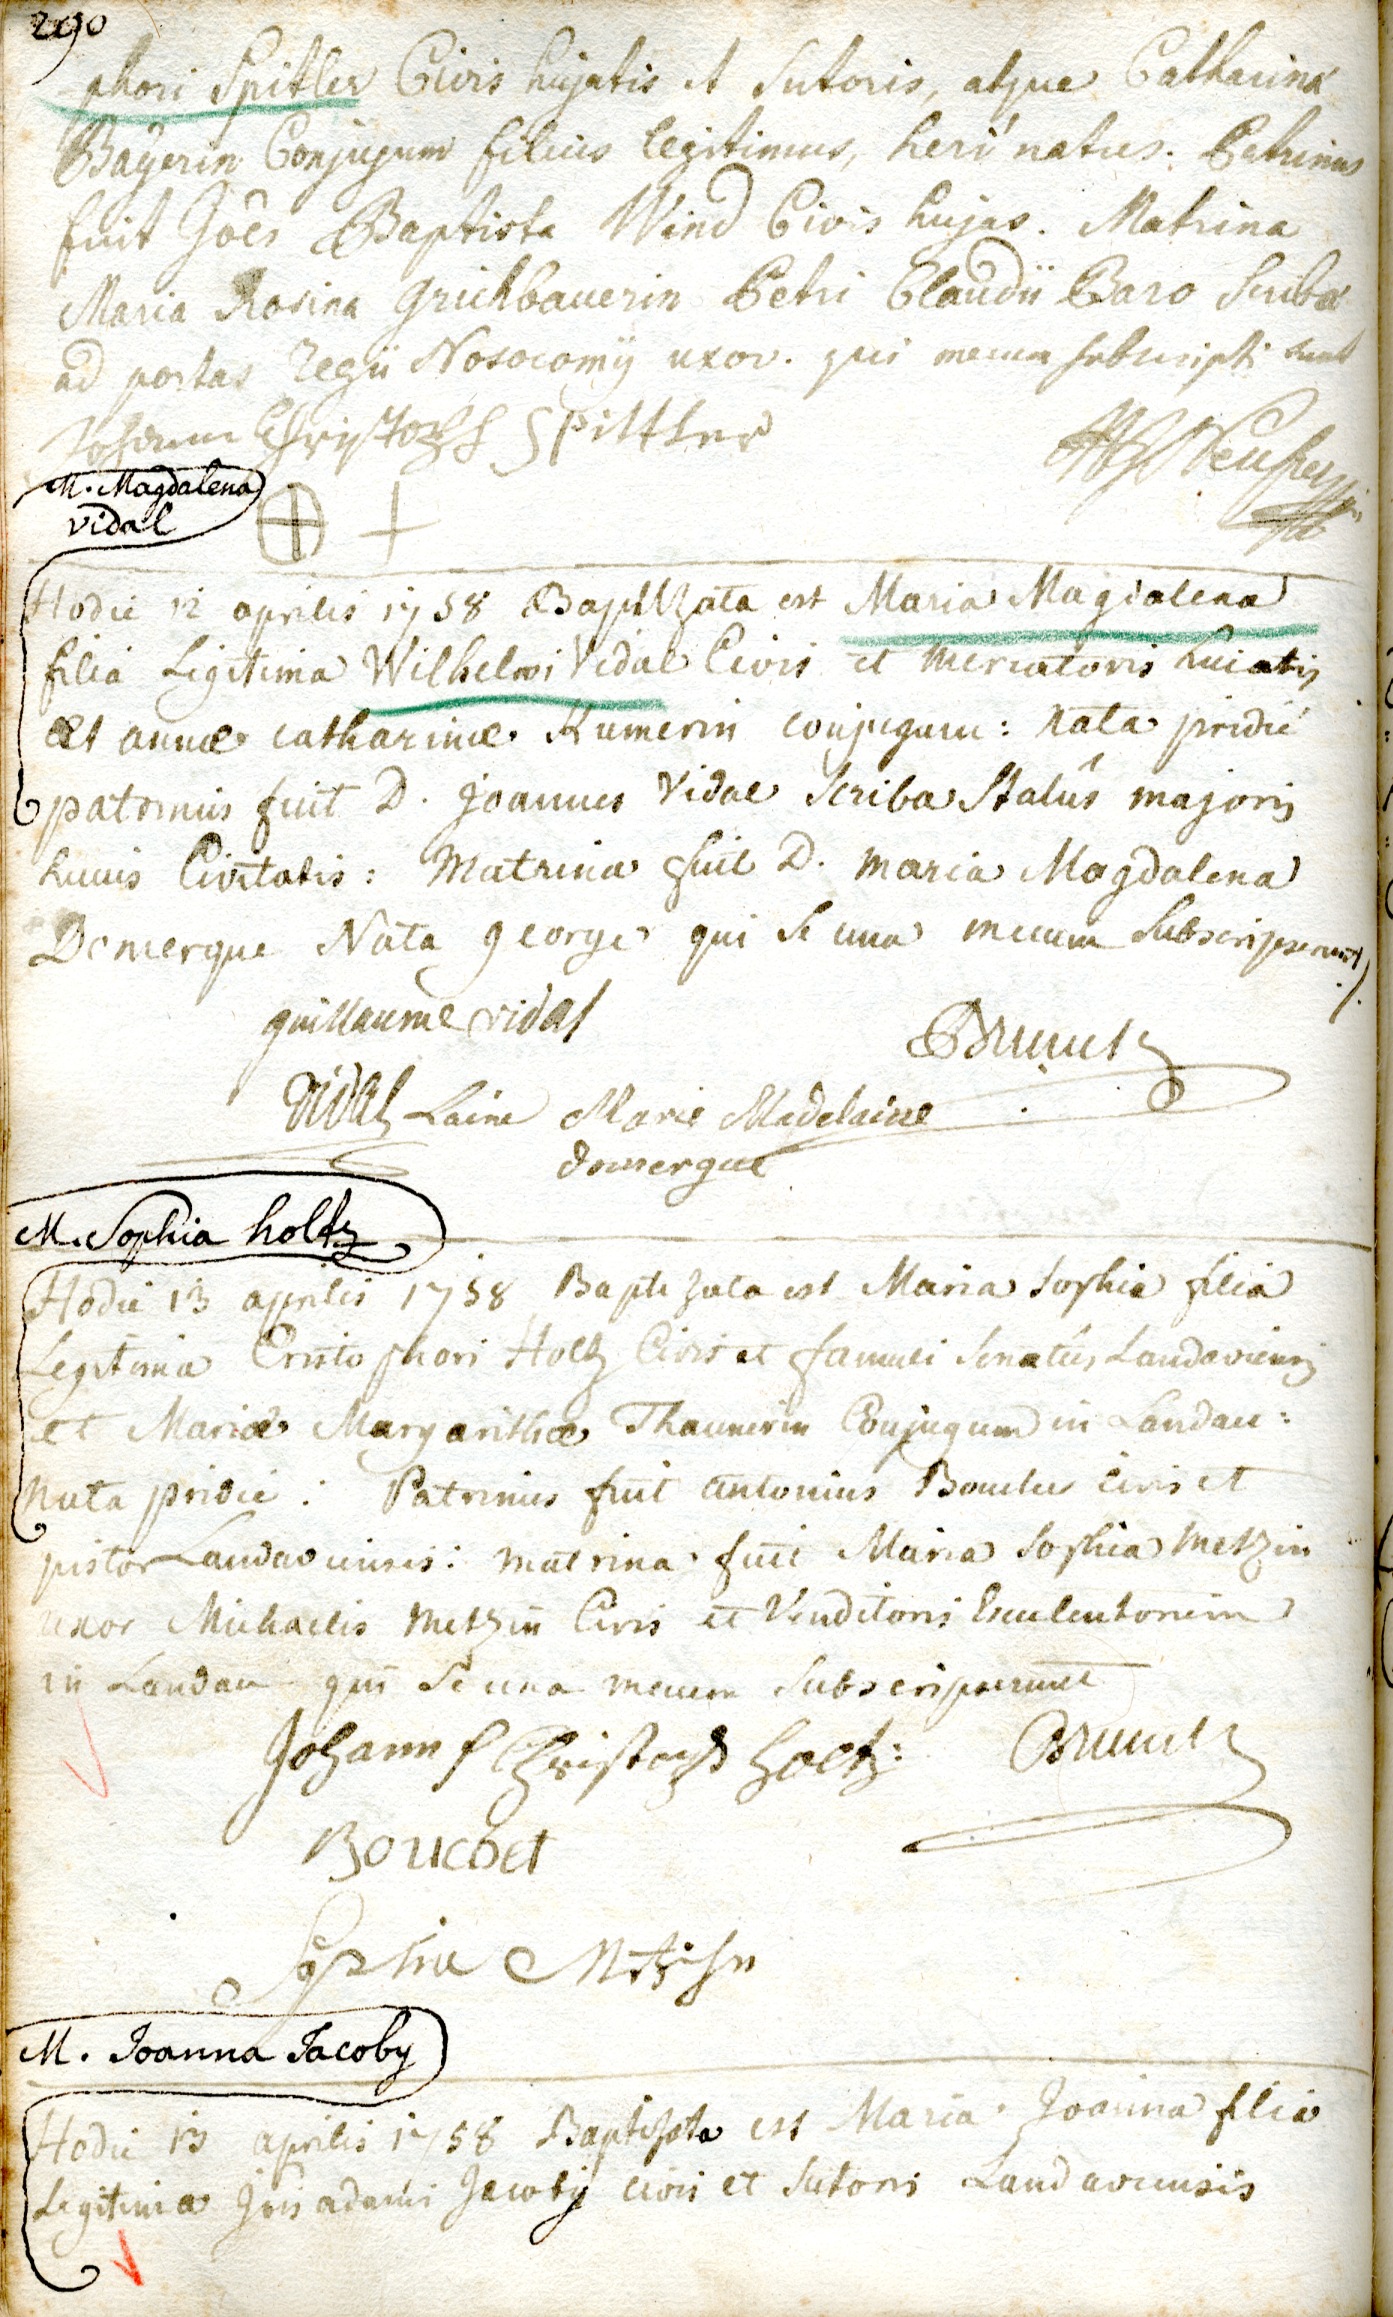 290
phori Spitler Civis hujatis et Sutoris, atque Catharinæ
Bayerin Conjugum filius legitimus, heri natus. Patrinus
fuit Joês Baptista Wind Civis hujas. Matrina
Maria Rosina Grichbauerin Petri Claudii Baro Scribæ
ad portas Regii Nosocomij uxor. qui mecum subscripti sunt
Johann Christoph Spittler
M. Magdalena
vidal
Hodie 12 aprilis 1758 Baptizata est Maria Magdalena
filia Legitima Wilhelmi Vidal Civis et Mercatoris huiatis
Et annæ catharinæ Kumerin conjugum: Nata pridie
patrinus fuit D. Joannes Vidal Scriba Statûs majoris
huius Civitatis: Matrina fuit D. Maria Magdalena
Domergue Nata george qui se una mecum Subscripserunt
guillaume vidal
Vidal Laine Marie Madelaine
domergue
M. Sophia holtz
Hodie 13 aprilis 1758 Baptizata est Maria Sophia filia
Legitima Cristophori Holtz Civis et famuli Senatûs Landaviensis
et Mariæ Margarithæ Thaunerin Conjugum in Landau:
Nata pridie: Patrinus fuit antonius civis et
pistor Landaviensis: matrina fuit Maria Sophia Metzin
uxor Michaelis Metzin Civis et Venditoris Esculentorum
in Landau qui se una mecum Subscripserunt
Johann Christoph Holtz:
Bouchet
Sophia
M. Joanna Jacoby
Hodie 13 aprilis 1758 Baptizata est Maria Joanna filia
Legitima Jois adami Jacoby civis et Sutoris Landaviensis